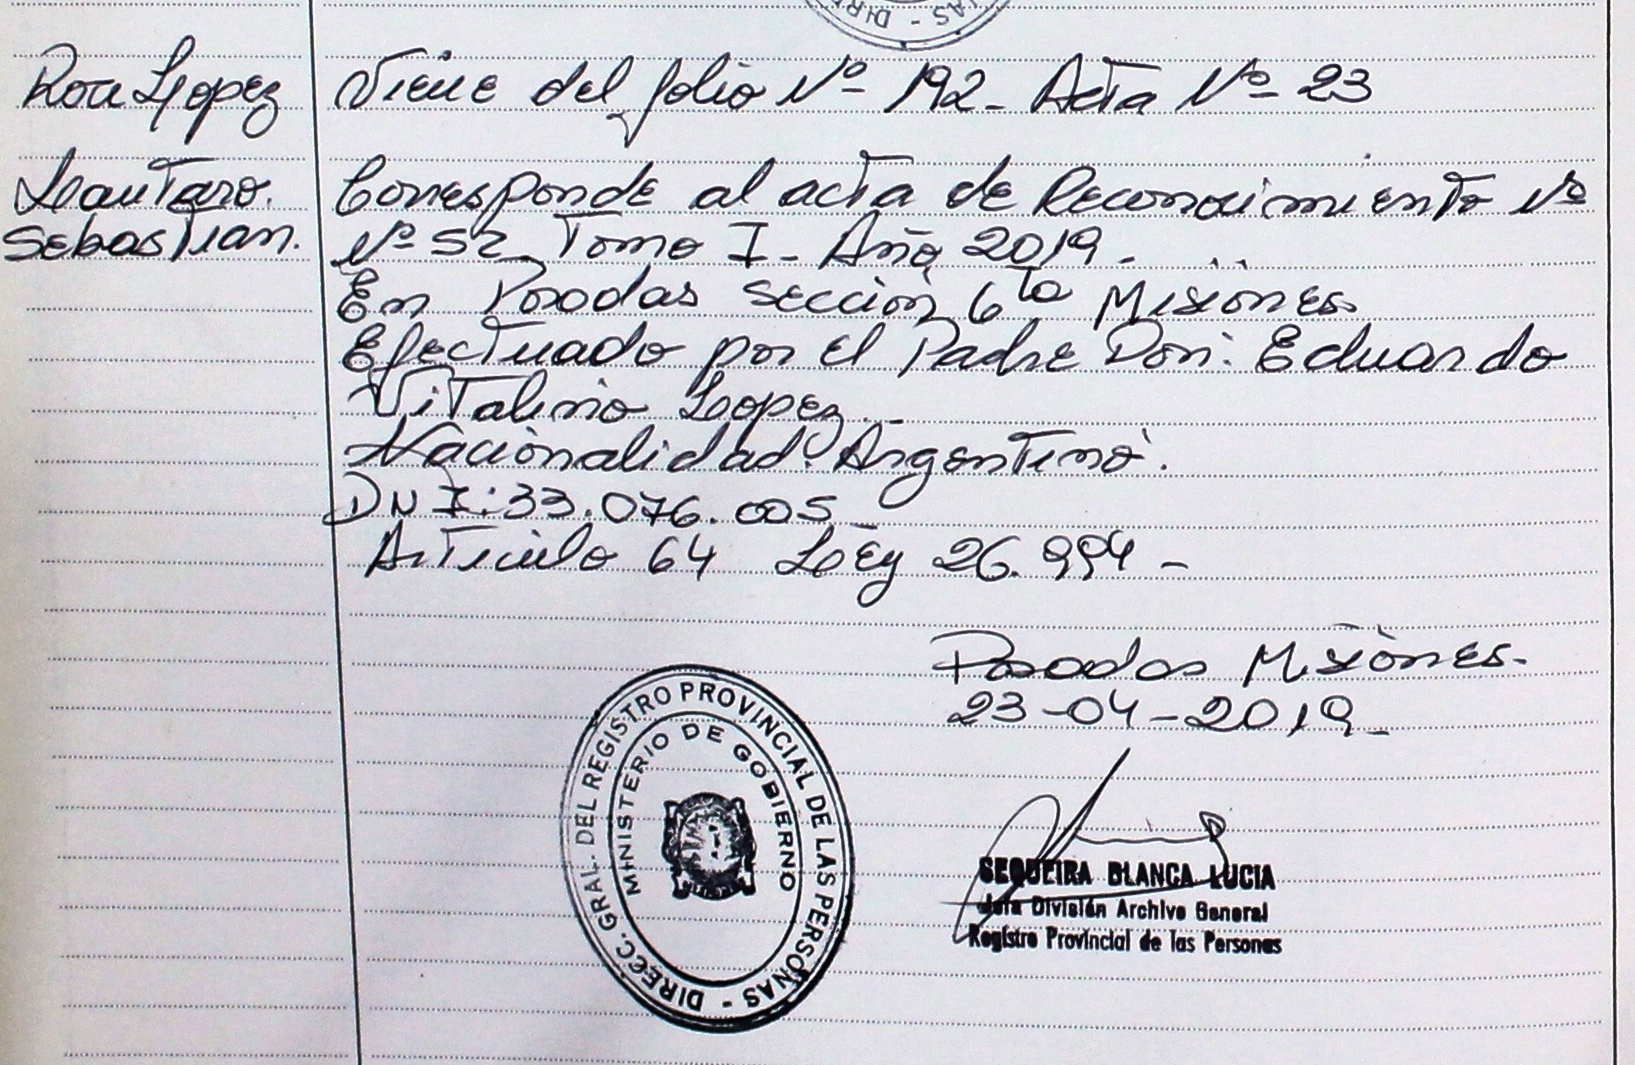 DIREC
NAS -
Rota Lopez
Lautaro.
Sebastian.
Viene del folio Nº 192 - Acta Nº 23
Corresponde al acta de Reconocimiento Nº
Nº 52 Tomo I - Año 2019 -
En Posadas sección 6ta Misiones
Efectuado por el Padre Don: Eduardo
Vitalino Lopez -
Nacionalidad: Argentino.
DNI: 33.076.005 -
Articulo 64 Ley 26.994 -
Posadas Misiones -
23-04-2019 -
DIRECC. GRAL. DEL REGISTRO PROVINCIAL DE LAS PERSONAS -
MINISTERIO DE GOBIERNO
SEQUEIRA BLANCA LUCIA
Jefa División Archivo General
Registro Provincial de las Personas